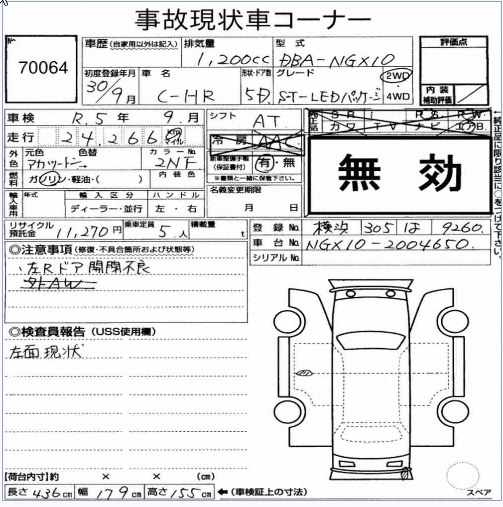 事故現状車コーナー
No.
70064
車歴(自家用以外は記入)
排気量
1,200cc
型式
DBA-NGX10
評価点
初度登録年月
30年/9月
車名
C-HR
形状・ドア数
5D
グレード
S-T-LEDパッケージ
2WD
4WD
内装
補助評価
車検 R.5年 9.月
走行 24,266
シフト AT
冷房 AAC
無効
外色
元色
色替
カラーNo.
2NF
燃料
ガソリン・軽油・( )
内装色
(保証書付)
有・無
名義変更期限
月 日
輸入車用
年式
輸入区分
ハンドル
ディーラー・並行
左・右
リサイクル預託金
11,270円
乗車定員
5人
積載量
t
登録No.
横浜 305 は 9260
車台No.
NGX10-2004650
シリアルNo.
◎注意事項(修復・不具合箇所および状態等)
左Rドア開閉不良
外AW
◎検査員報告(USS使用欄)
左面現状
[荷台内寸]約 × × (cm)
長さ436cm 幅179cm 高さ155cm ←(車検証上の寸法)
スペア